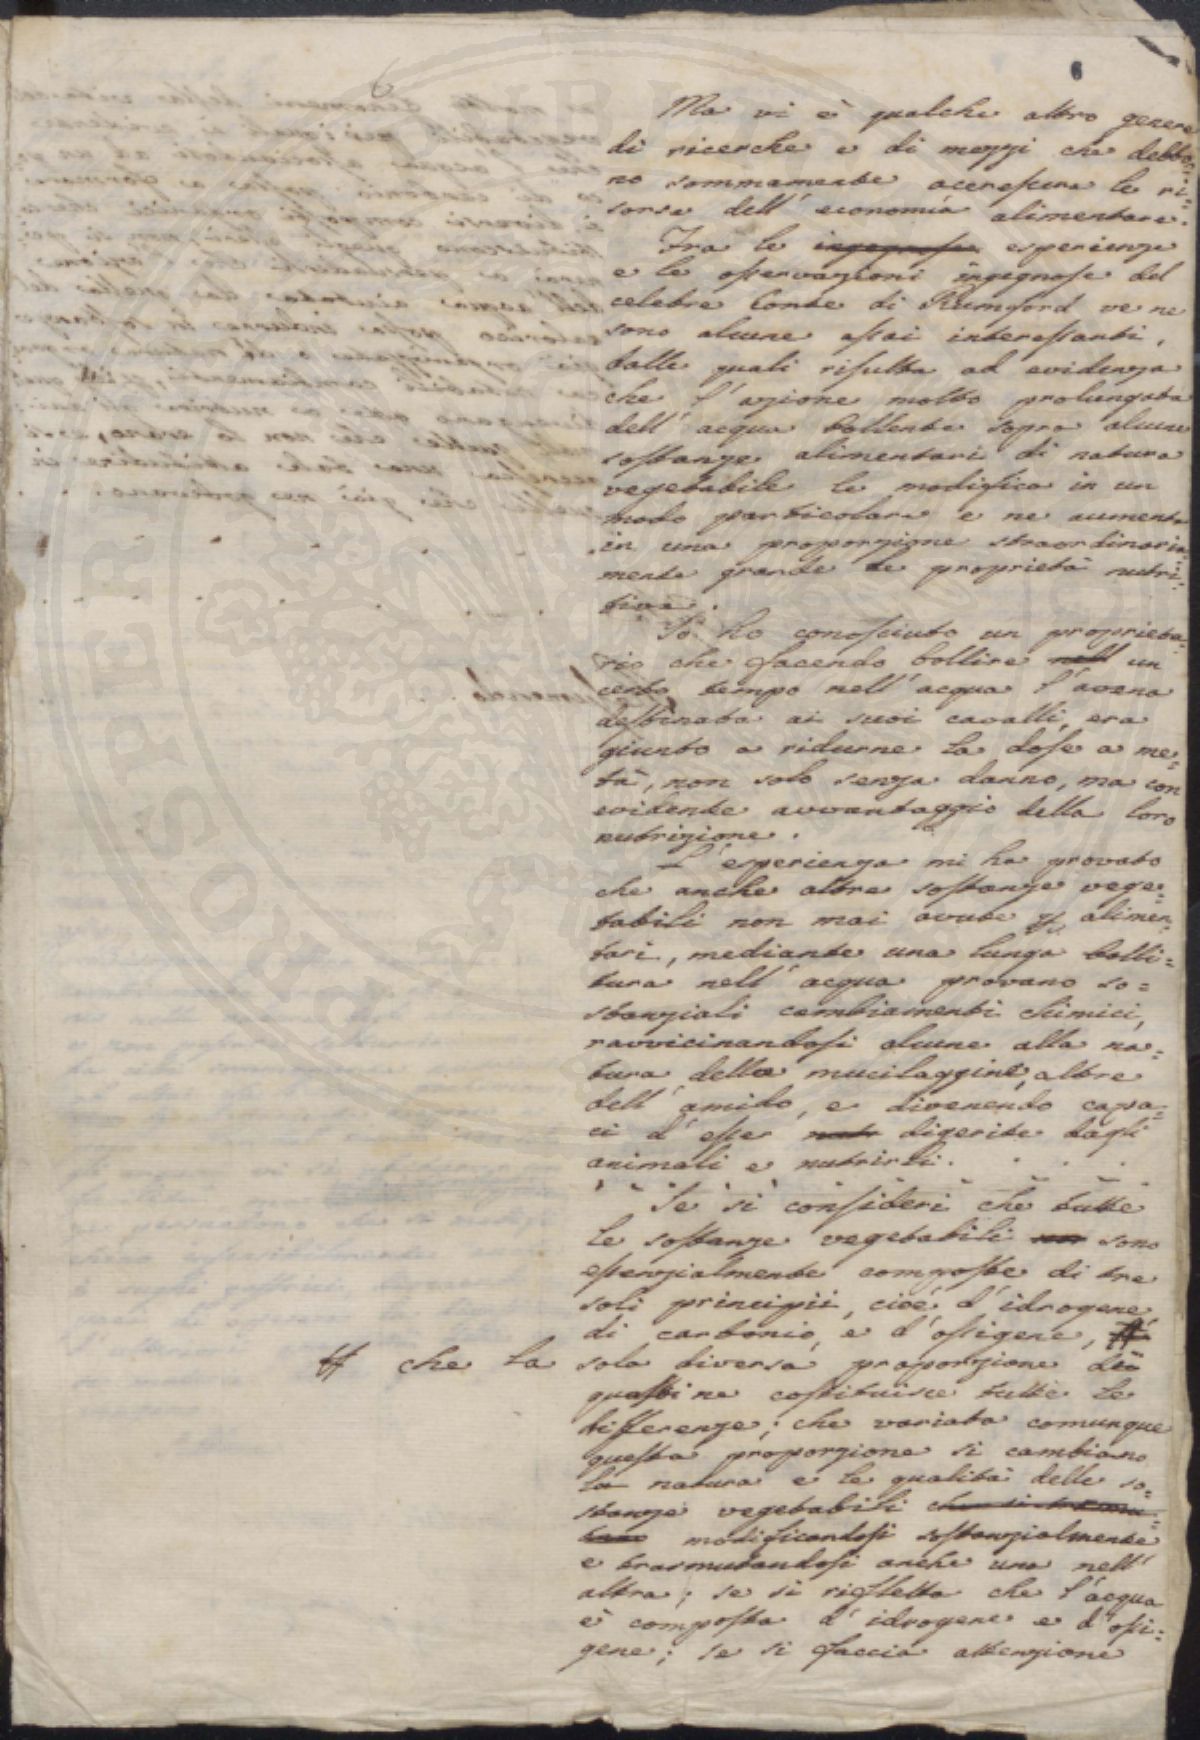 6
6
Ma vi è qualche altro genere
di ricerche e di mezzi che debbo=
no sommamente accrescere le ri=
sorse dell' economia alimentare.
Fra le ingegnose esperienze
e le osservazioni ingegnose del
celebre Conte di Rumford ve ne
sono alcune assai interessanti,
dalle quali risulta ad evidenza
che l'azione molto prolungata
dell' acqua bollente sopra alcune
sostanze alimentari di natura
vegetabile le modifica in un
modo particolare e ne aumenta
in una proporzione straordinaria=
mente grande le proprietà nutri=
tive.
Io ho conosciuto un proprieta=
rio che facendo bollire nell un
certo tempo nell' acqua l'avena
destinata ai suoi cavalli, era
giunto a ridurne la dose a me=
tà, non solo senza danno, ma con
evidente avvantaggio della loro
nutrizione.
L'esperienza mi ha provato
che anche altre sostanze vege=
tabili non mai avute p alimen=
tari, mediante una lunga bolli=
tura nell' acqua provano so=
stanziali cambiamenti chimici,
ravvicinandosi alcune alla na=
tura della mucilaggine, altre
dell' amido, e divenendo capa=
ci d'esse nutr digerite dagli
animali e nutrirli. . . .
Se si consideri che tutte
le sostanze vegetabili non sono
essenzialmente composte di tre
soli principii, cioè d'idrogene,
di carbonio, e d'ossigene, #
# che la sola diversa proporzione dei
quasti ne costituisce tutte le
differenze; che variata comunque
questa proporzione si cambiano
la natura e le qualità delle so=
stanze vegetabili che si
modificandosi sostanzialmente
e trasmutandosi anche una nell'
altra; se si rifletta che l'acqua
è composta d'idrogene e d'ossi=
gene; se si faccia attenzione